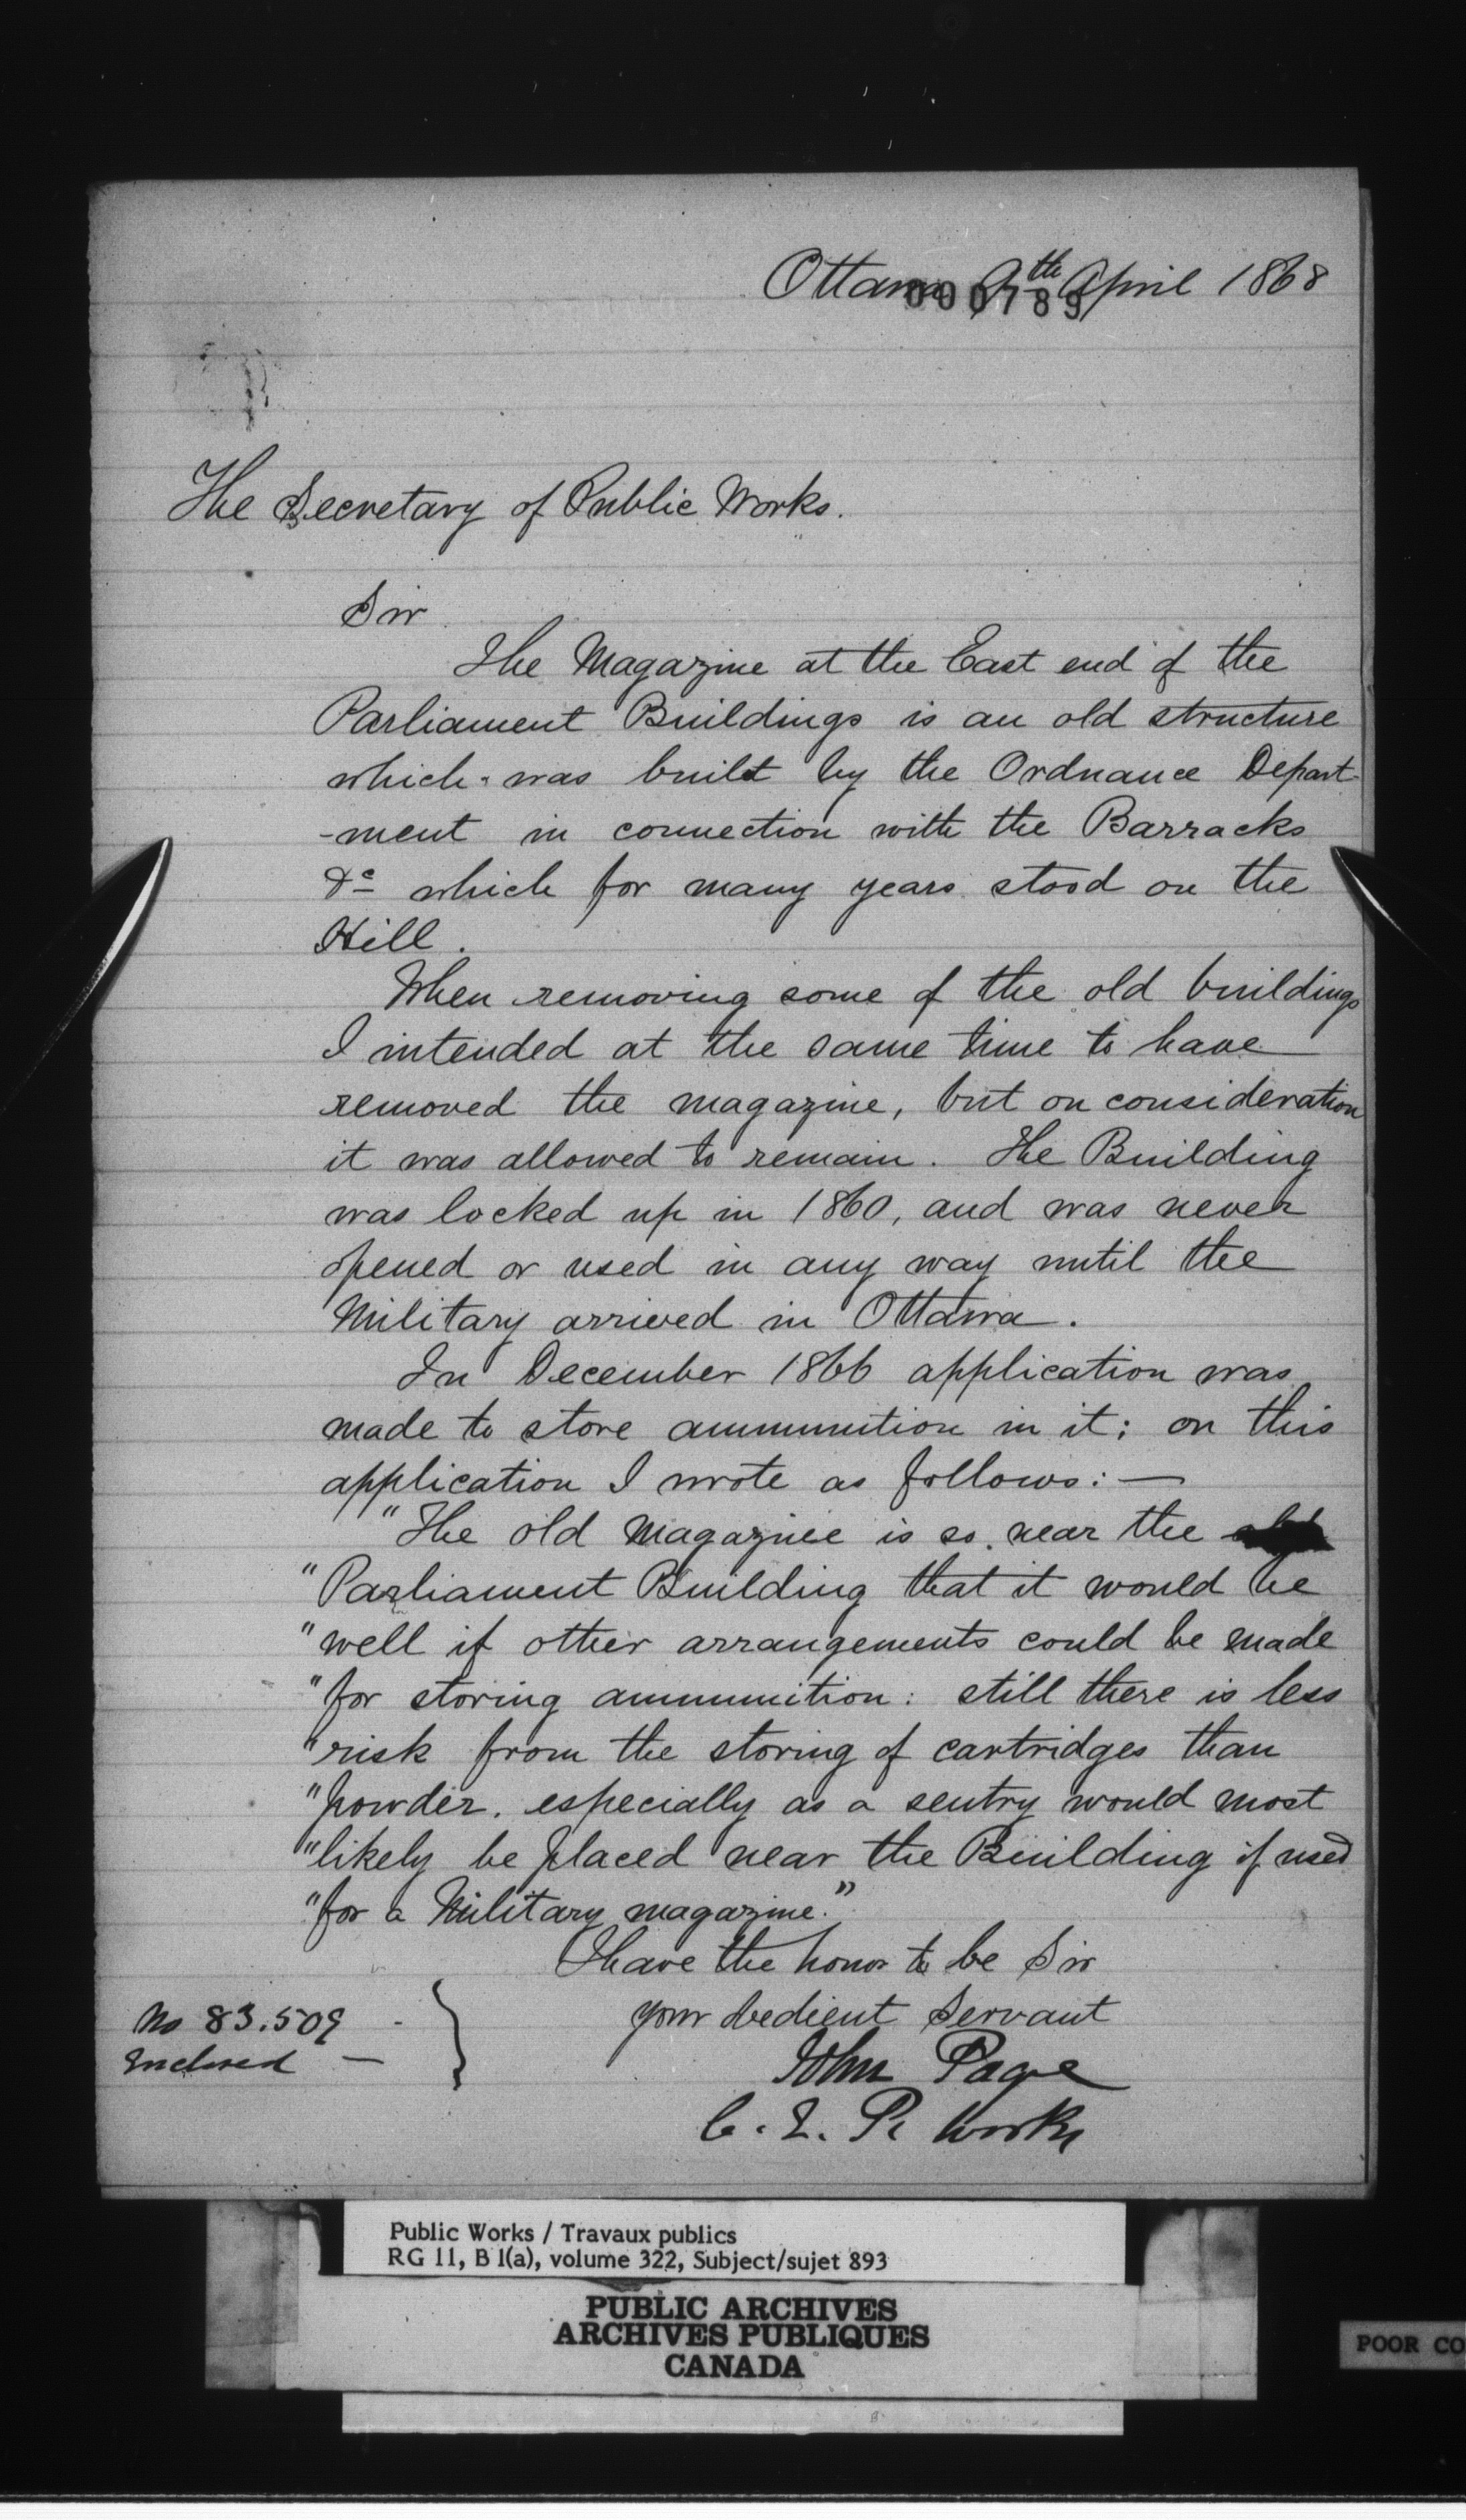 Ottawa 9th April 1868
000789
The Secretary of Public Works.
Sir
The Magazine at the East end of the
Parliament Buildings is an old structure
which was built by the Ordnance Depart-
-ment in connection with the Barracks
&c which for many years stood on the
Hill.
When removing some of the old buildings
I intended at the same time to have
removed the magazine, but on consideration
it was allowed to remain. The Building
was locked up in 1860, and was never
opened or used in any way until the
Military arrived in Ottawa.
In December 1866 application was
made to store ammunition in it; on this
application I wrote as follows:—
"The old Magazine is so near the
"Parliament Building that it would be
"well if other arrangements could be made
"for storing ammunition: still there is less
"risk from the storing of cartridges than
"powder, especially as a sentry would most
"likely be placed near the Building if used
"for a Military magazine."
I have the honor to be Sir
your obedient Servant
John Page
C. E. P. Works
No 83.509
Enclosed —
Public Works / Travaux publics
RG 11, B 1(a), volume 322, Subject/sujet 893
PUBLIC ARCHIVES
ARCHIVES PUBLIQUES
CANADA
POOR CO